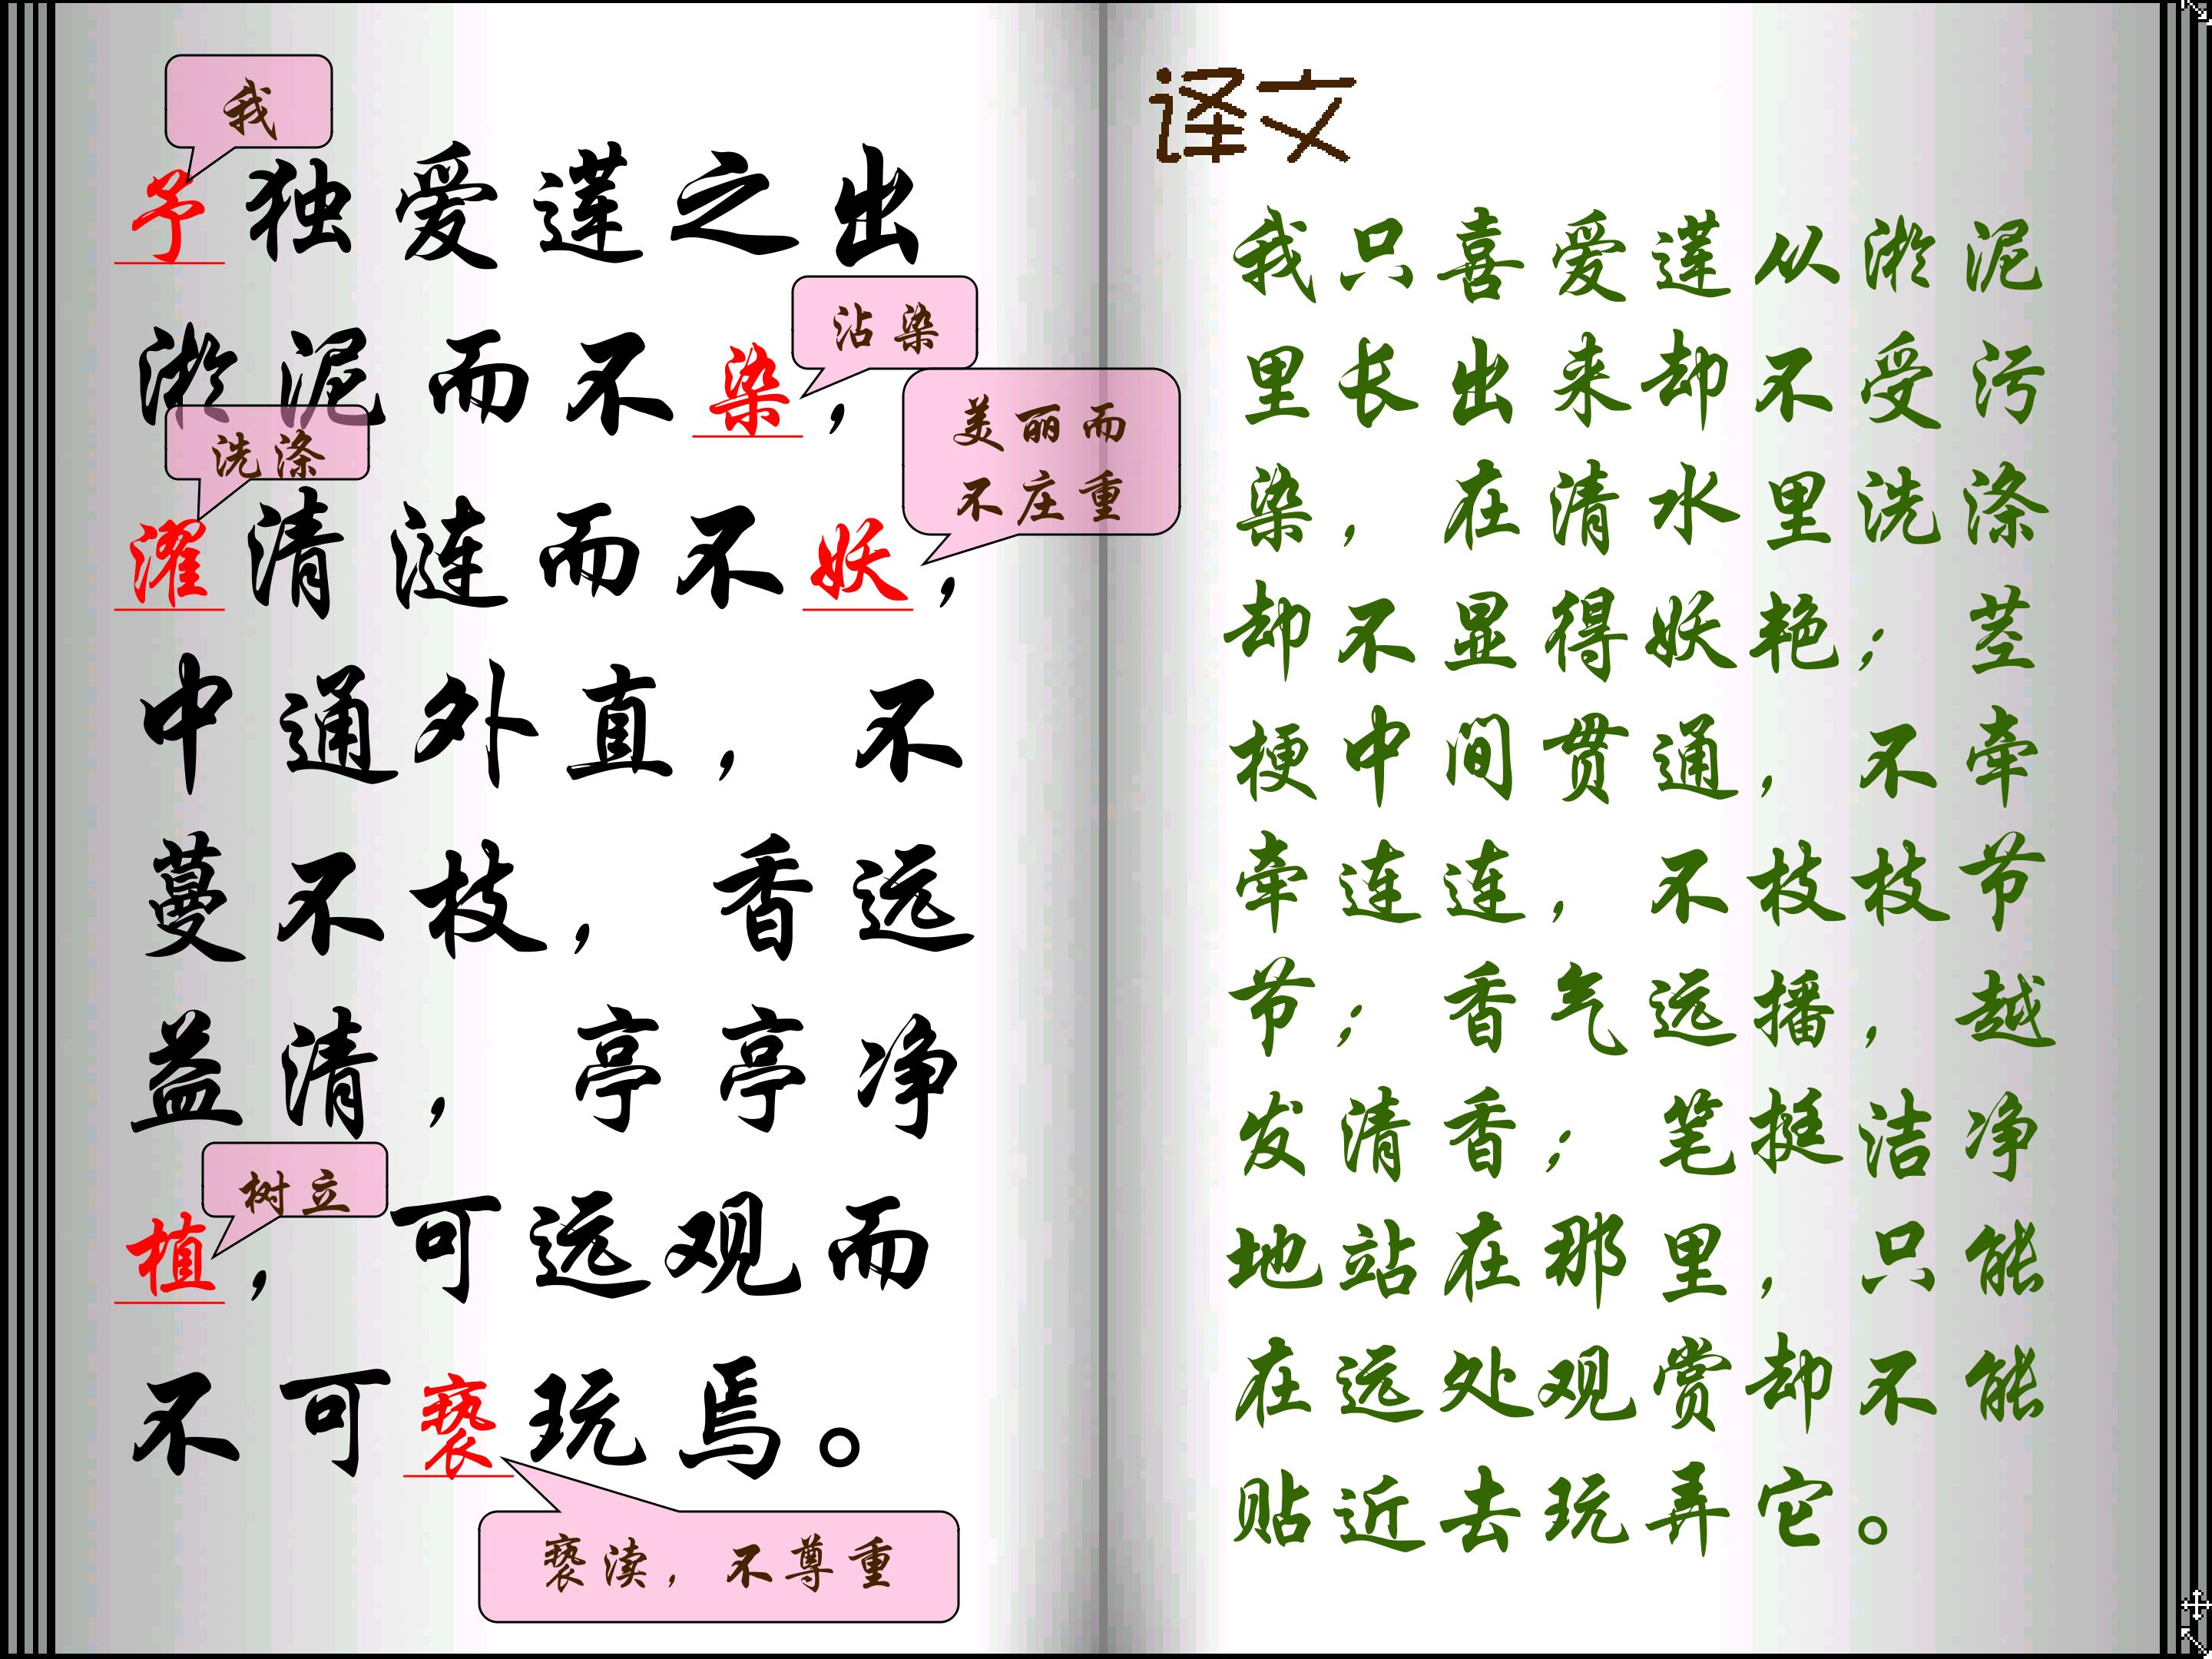 我
予独爱莲之出
沾染
淤泥而不染，
美丽而
不庄重
洗涤
濯清涟而不妖，
中通外直，不
蔓不枝，香远
益清，亭亭净
树立
植，可远观而
不可亵玩焉。
亵渎，不尊重
译文
我只喜爱莲从淤泥
里长出来却不受污
染，在清水里洗涤
却不显得妖艳；茎
梗中间贯通，不牵
牵连连，不枝枝节
节；香气远播，越
发清香；笔挺洁净
地站在那里，只能
在远处观赏却不能
贴近去玩弄它。